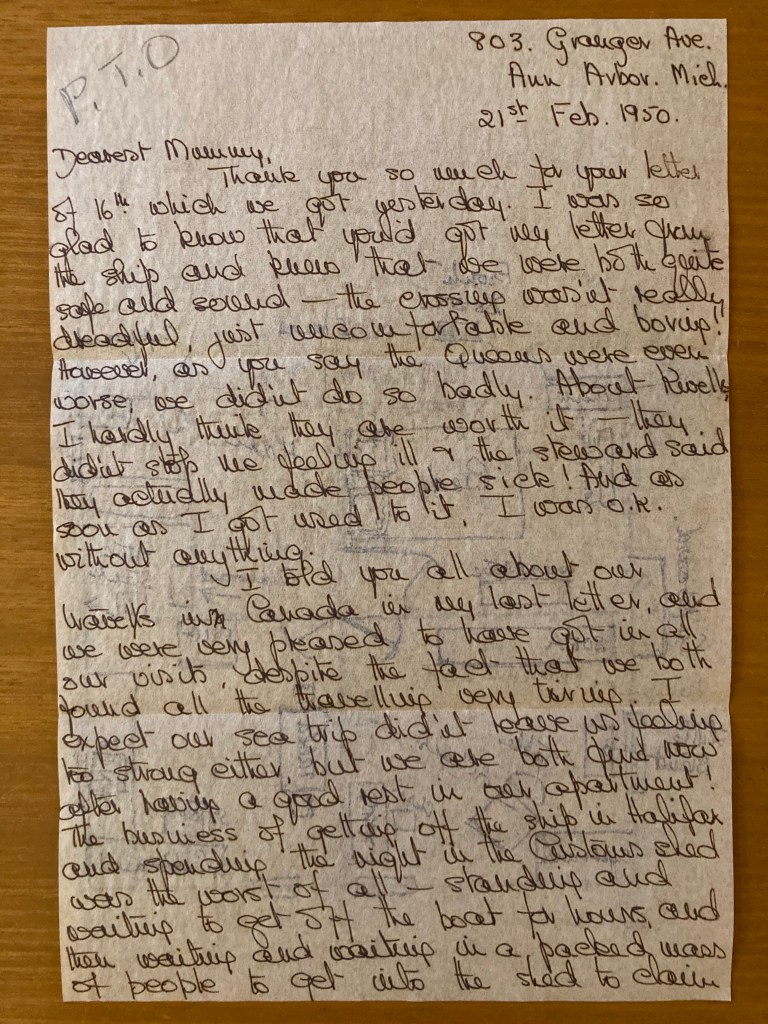 P.T.O
803. Granger Ave.
Ann Arbor. Mich.
21st Feb. 1950.
Dearest Mummy,
Thank you so much for your letter
of 16th which we got yesterday. I was so
glad to know that you'd got my letter from
the ship and knew that we were both quite
safe and sound — the crossing wasn't really
dreadful, just uncomfortable and boring!
However, as you say the Queens were even
worse, we didn't do so badly. About Kwells,
I hardly think they are worth it — they
didn't stop me feeling ill & the steward said
they actually made people sick! And as
soon as I got used to it, I was o.k.
without anything.
I told you all about our
travels in Canada in my last letter, and
we were very pleased to have got in all
our visits, despite the fact that we both
found all the travelling very tiring. I
expect our sea trip didn't leave us feeling
too strong either, but we are both fine now
after having a good rest in our apartment!
The business of getting off the ship in Halifax
and spending the night in the Customs shed
was the worst of all — standing and
waiting to get off the boat for hours, and
then waiting and waiting in a packed mass
of people to get into the shed to claim